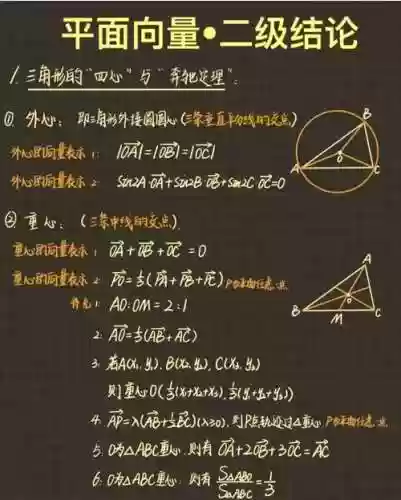 平面向量•二级结论
1. 三角形的“四心”与“奔驰定理”:
① 外心: 即三角形外接圆圆心(三条垂直平分线的交点)
外心的向量表示 1: |OA|=|OB|=|OC|
外心的向量表示 2: Sin2A·OA+Sin2B·OB+Sin2C·OC=0
B
O
A
C
② 重心: (三条中线的交点)
重心的向量表示 1: OA+OB+OC=0
重心的向量表示 2: PO=⅓(PA+PB+PC) P为平面任意一点
补充 1 AO:OM=2:1
2. AO=⅓(AB+AC)
3. 若A(x₁,y₁), B(x₂,y₂), C(x₃,y₃)
则重心O(⅓(x₁+x₂+x₃), ⅓(y₁+y₂+y₃))
A
O
B
M
C
4. AP=λ(AB+½BC)(λ≥0), 则P点轨迹过△重心, P为平面任意一点
5. O为△ABC重心, 则有 OA+2OB+3OC=AC
6. O为△ABC重心, 则有 S△ABO/S△ABC=1/3